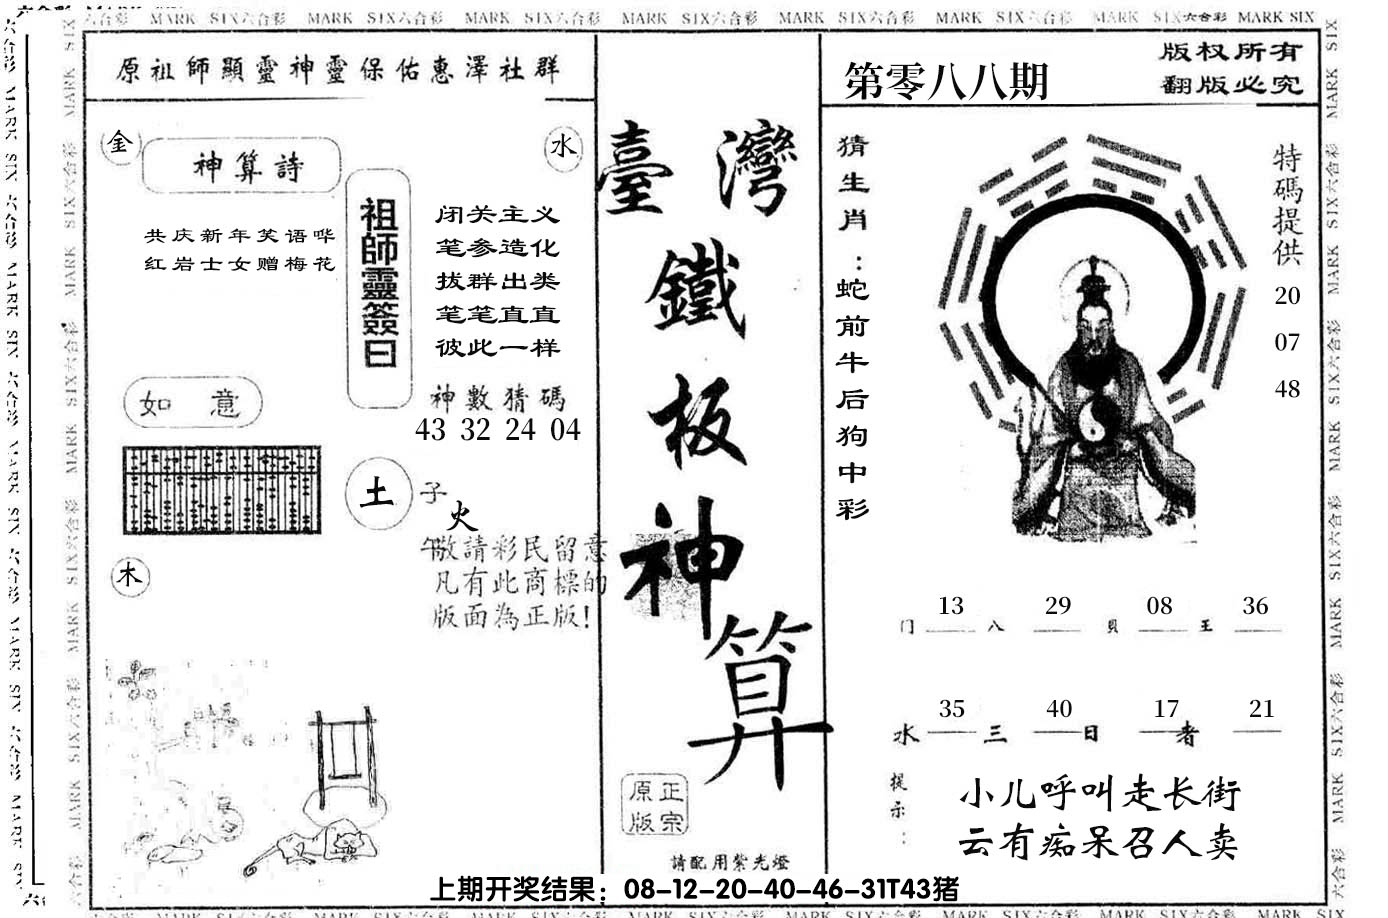 MARK SIX六合彩 MARK SIX六合彩 MARK SIX六合彩 MARK SIX六合彩 MARK SIX六合彩 MARK SIX六合彩 MARK SIX六合彩 MARK SIX
原祖師顯靈神靈保佑惠澤社群
金
水
神算詩
共庆新年笑语哗
红岩士女赠梅花
祖師靈簽曰
闭关主义
笔参造化
拔群出类
笔笔直直
彼此一样
神數猜碼
43 32 24 04
如意
土
子
火
午
木
敬請彩民留意
凡有此商標的
版面為正版!
臺灣
鐵
板
神
算
正宗
原版
請配用紫光燈
第零八八期
版权所有
翻版必究
猜生肖:蛇前牛后狗中彩
特碼提供
20
07
48
13 29 08 36
门 八 貝 王
35 40 17 21
水 三 日 者
提示:
小儿呼叫走长街
云有痴呆召人卖
上期开奖结果：08-12-20-40-46-31T43猪